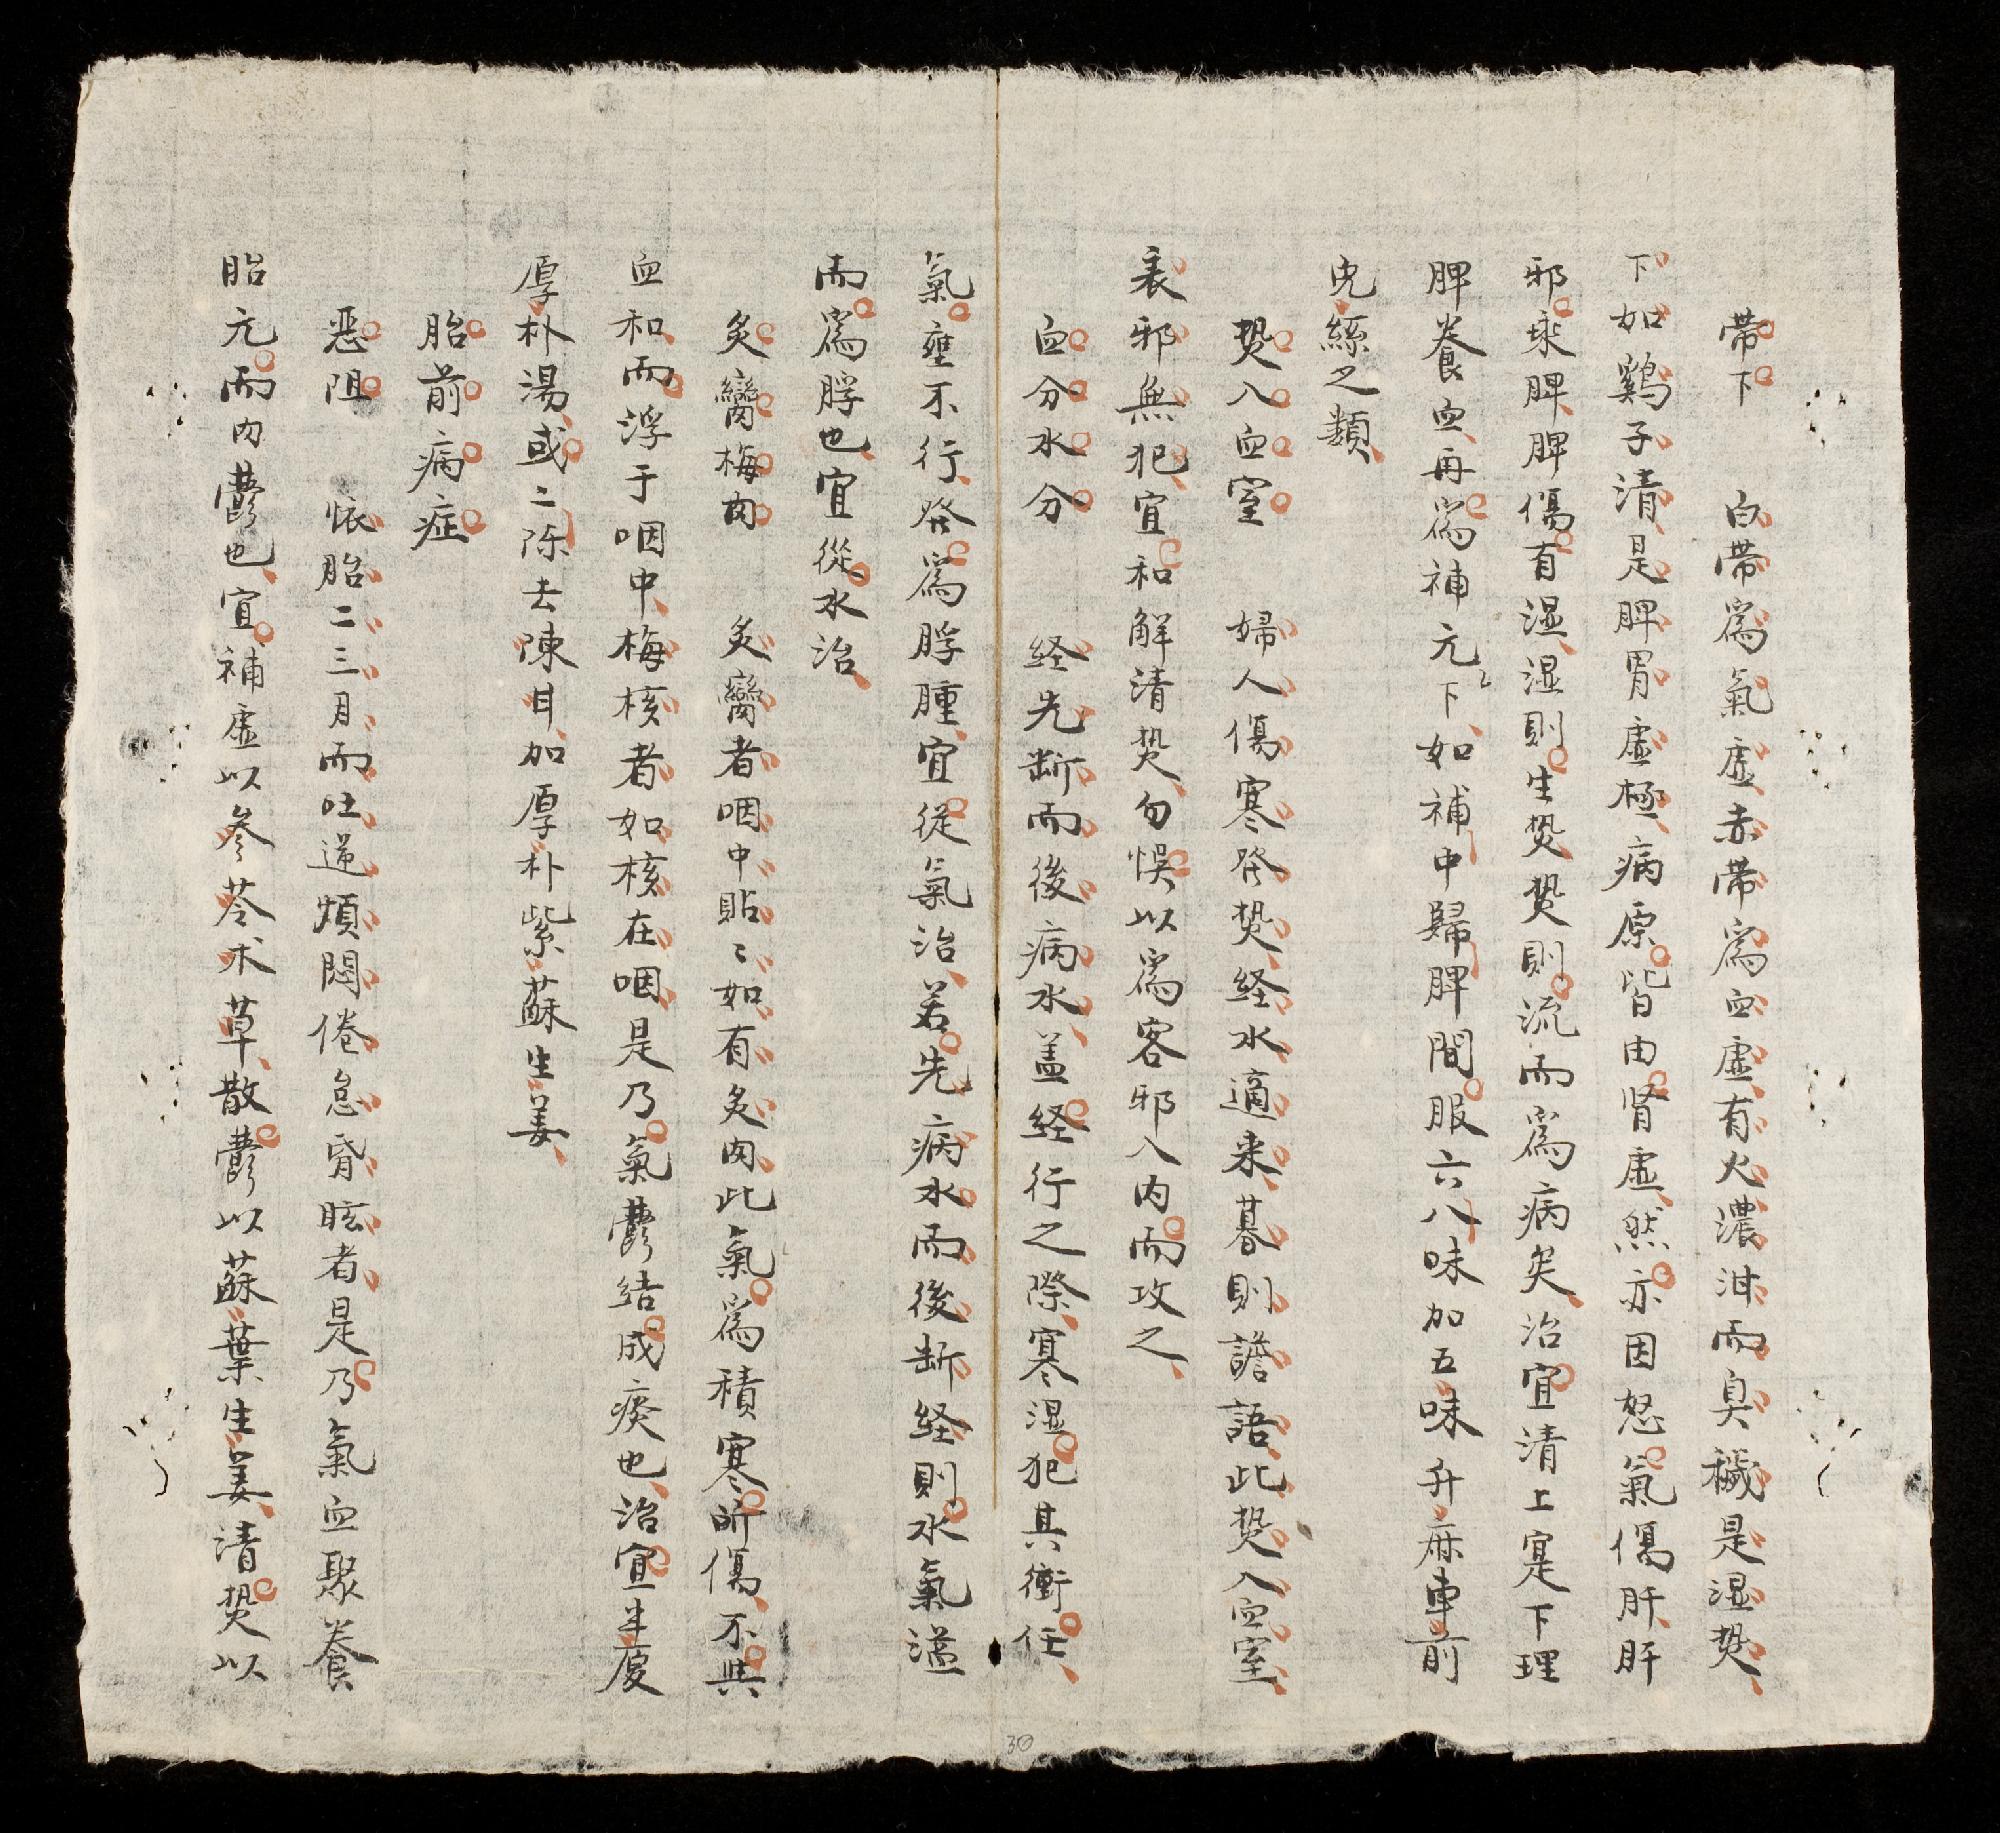 帶下　白帶爲氣虛赤帶爲血虛有火濃泔而臭穢是湿𤍠
下如鷄子清是脾胃虛極病原皆由腎虛然亦因怒氣傷肝肝
邪乘脾脾傷有湿湿則生𤍠𤍠則流而爲病矣治宜清上寔下理
脾養血再爲補元下如補中歸脾間服六八味加五味升麻車前
兎絲之類
𤍠入血室　婦人傷寒發𤍠経水適来暮則譫語此𤍠入血室
表邪無犯宜和解清𤍠勿悞以爲客邪入内而攻之
血分水分　経先断而後病水盖経行之際寒湿犯其衝任
氣壅不行發爲脬腫宜從氣治若先病水而後断経則水氣溢
而爲脬也宜從水治
炙臠梅肉　炙臠者咽中貼〻如有炙肉此氣爲積寒所傷不與
血和而浮于咽中梅核者如核在咽是乃氣欝结成痰也治宜半廈
厚朴湯或二陈去陳甘加厚朴紫蘇生姜
胎前病症
恶阻　懷胎二三月而吐逆煩悶倦怠昏眩者是乃氣血聚養
胎元而内欝也宜補虛以參苓术草散欝以蘇葉生姜清𤍠以
30